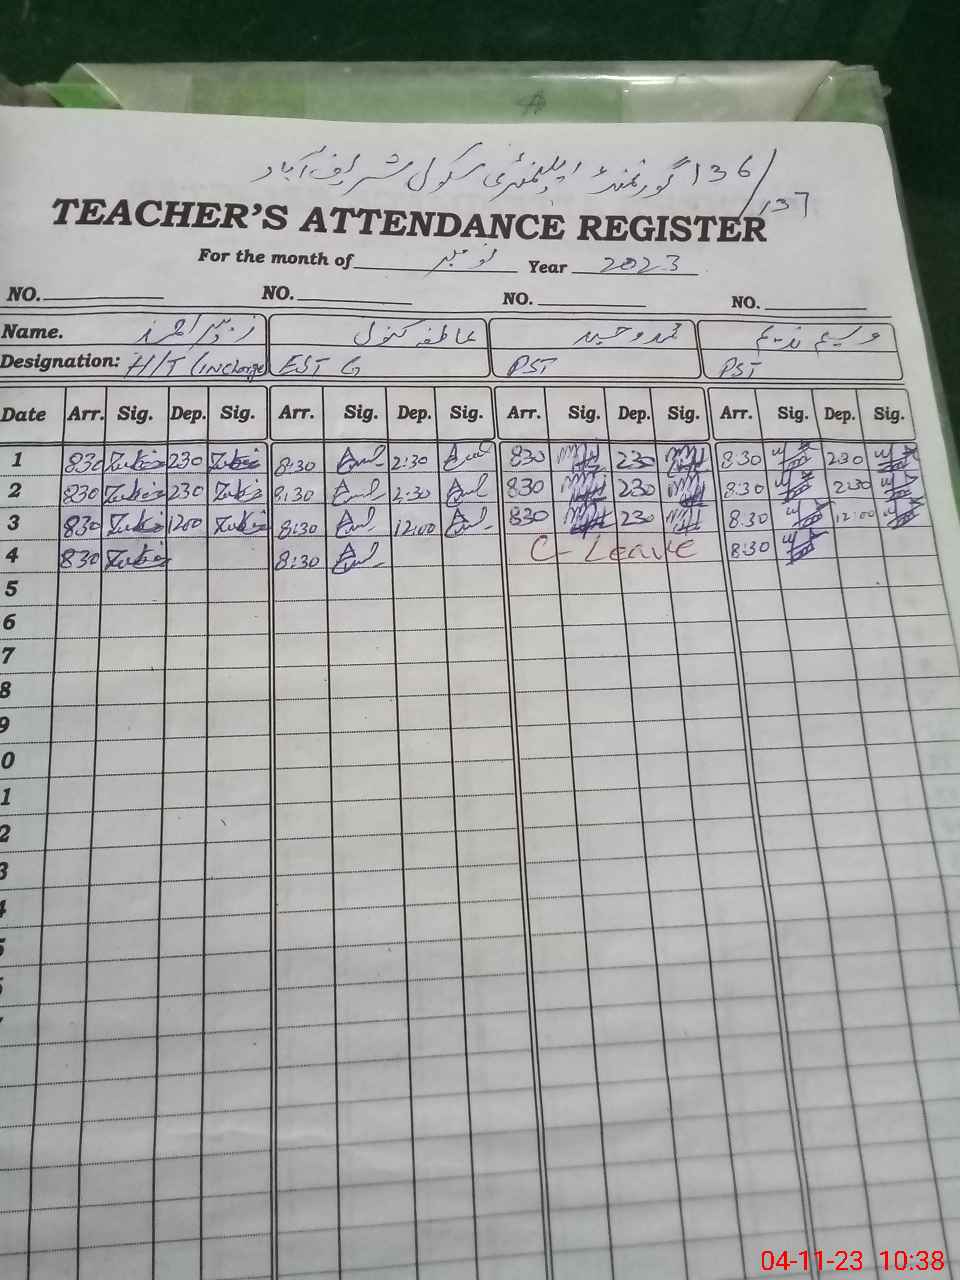 گورنمنٹ ایلیمنٹری سکول شریف آباد 136/137
TEACHER'S ATTENDANCE REGISTER
For the month of نومبر Year 2023
NO. NO. NO. NO.
Name. زبیر احمد عاطفہ کنول محمد وحید وسیم ندیم
Designation: H/T (Incharge) EST G PST PST
Date Arr. Sig. Dep. Sig. Arr. Sig. Dep. Sig. Arr. Sig. Dep. Sig. Arr. Sig. Dep. Sig.
1 830 230 8:30 2:30 830 230 8:30 2:30
2 830 230 8:30 2:30 830 230 8:30 2:30
3 830 1200 8:30 12:00 830 230 8:30 12:00
4 830 8:30 C- Leave 8:30
5
6
7
8
9
0
1
2
3
4
5
04-11-23 10:38